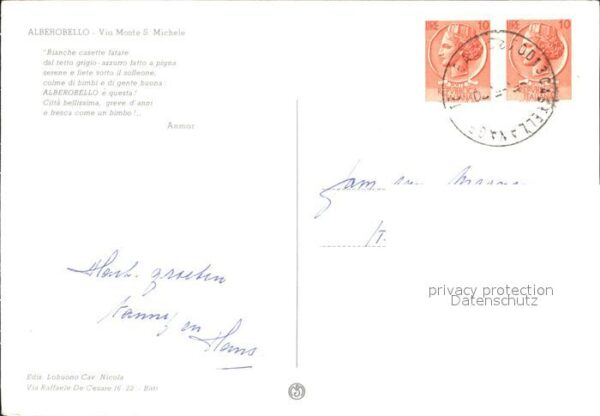 ALBEROBELLO - Via Monte S. Michele
"Bianche casette fatate
dal tetto grigio-azzurro fatto a pigna
serene e liete sotto il solleone,
colme di bimbi e di gente buona:
ALBEROBELLO è questa!
Città bellissima, greve d'anni
e fresca come un bimbo!..
Asmar
LIRE 10
LIRE 10
70013 CASTELLANA G
Fam.
Hart. groeten
Fanny en
Hans.
privacy protection
Datenschutz
Ediz. Lobuono Cav. Nicola
Via Raffaele De Cesare 16-22 - Bari